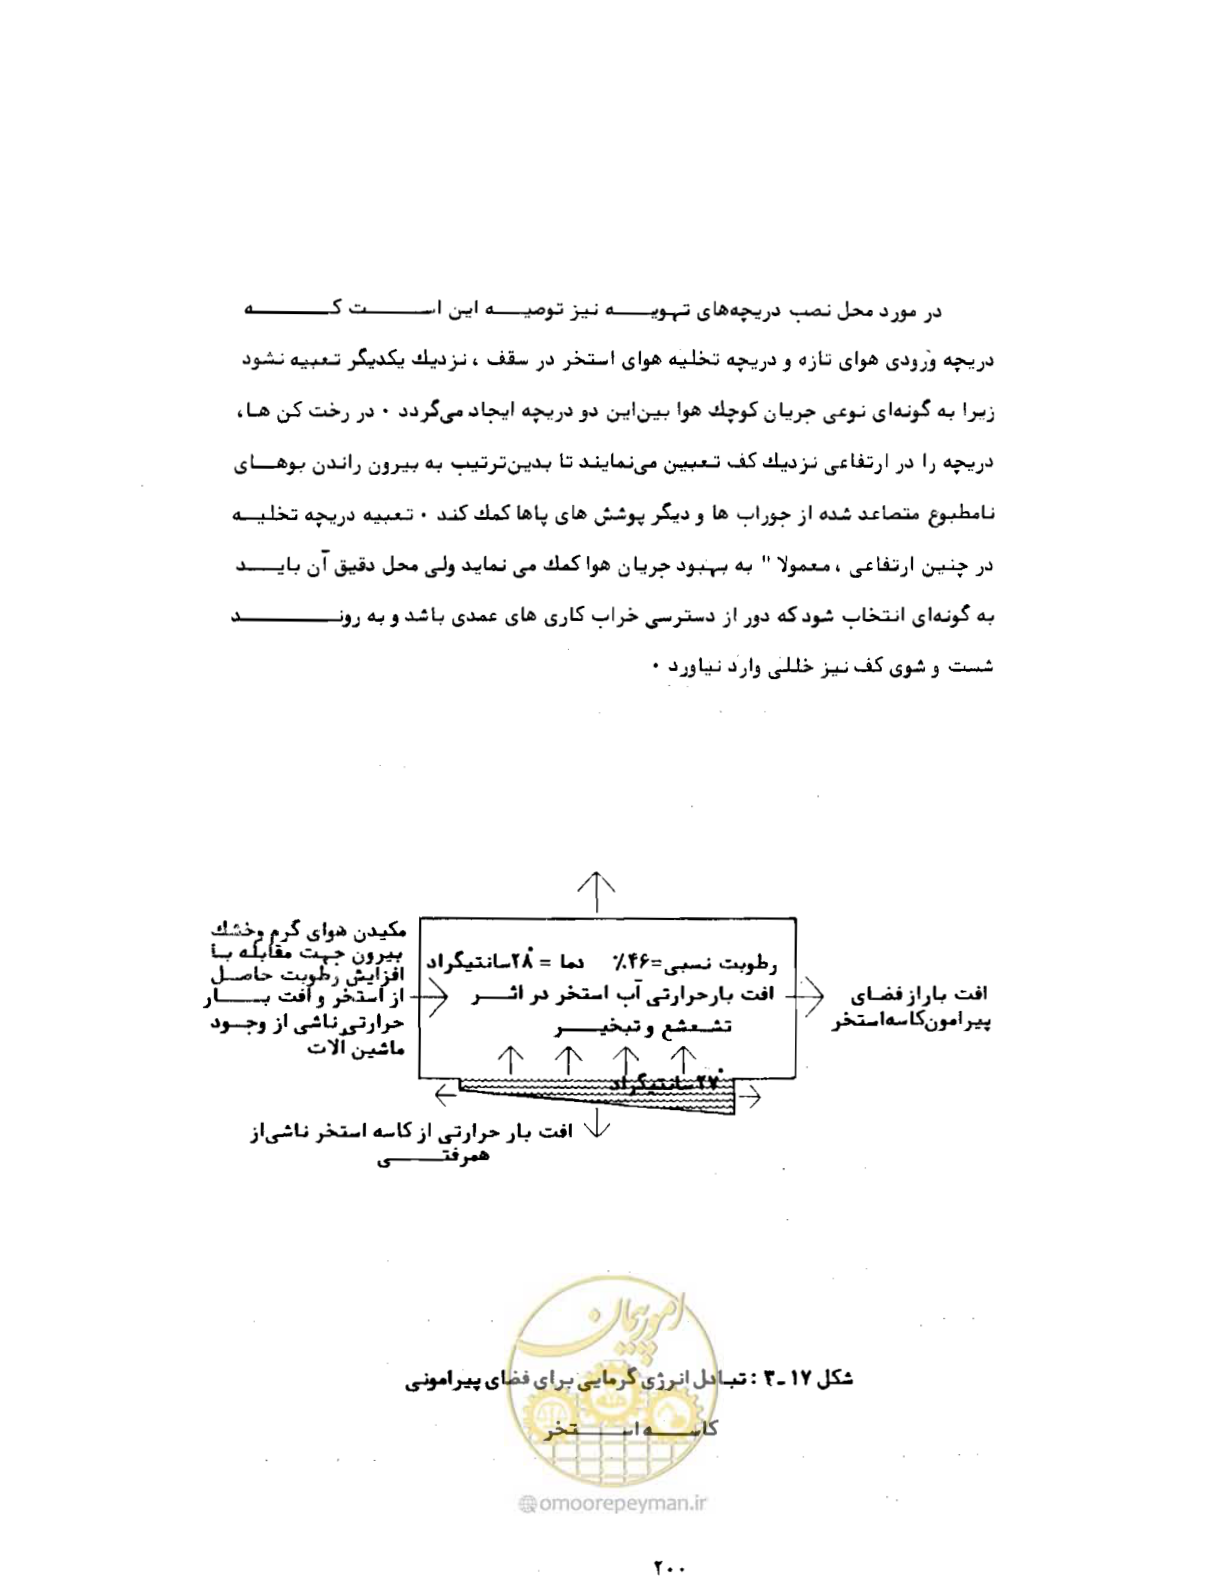 در مورد محل نصب دریچه‌های تهویه نیز توصیه این است که
دریچه ورودی هوای تازه و دریچه تخلیه هوای استخر در سقف ، نزدیك یکدیگر تعبیه نشود
زیرا به گونه‌ای نوعی جریان کوچك هوا بین‌این دو دریچه ایجاد می‌گردد ۰ در رخت کن ها،
دریچه را در ارتفاعی نزدیك کف تعیین می‌نمایند تا بدین‌ترتیب به بیرون راندن بوهای
نامطبوع متصاعد شده از جوراب ها و دیگر پوشش های پاها کمك کند ۰ تعبیه دریچه تخلیه
در چنین ارتفاعی ، معمولا " به بهبود جریان هوا کمك می نماید ولی محل دقیق آن باید
به گونه‌ای انتخاب شود که دور از دسترسی خراب کاری های عمدی باشد و به روند
شست و شوی کف نیز خللی وارد نیاورد ۰
مکیدن هوای گرم وخشك
بیرون جهت مقابله با
افزایش رطوبت حاصل
از استخر و افت بار
حرارتی ناشی از وجود
ماشین آلات
رطوبت نسبی=۴۶٪ دما = ۲۸°سانتیگراد
افت بارحرارتی آب استخر در اثر
تشعشع و تبخیر
افت باراز فضای
پیرامون‌کاسه‌استخر
۲۷°سانتیگراد
افت بار حرارتی از کاسه استخر ناشی‌از
همرفتی
امور پیمان
شکل ۱۷ ـ ۳ : تبادل انرژی گرمایی برای فضای پیرامونی
کاسه استخر
@omoorepeyman.ir
۲۰۰